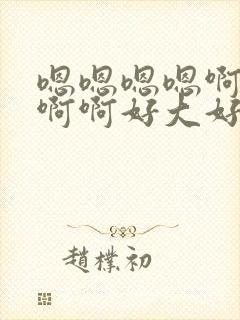 嗯嗯嗯嗯啊
啊啊好大好
趙樸初